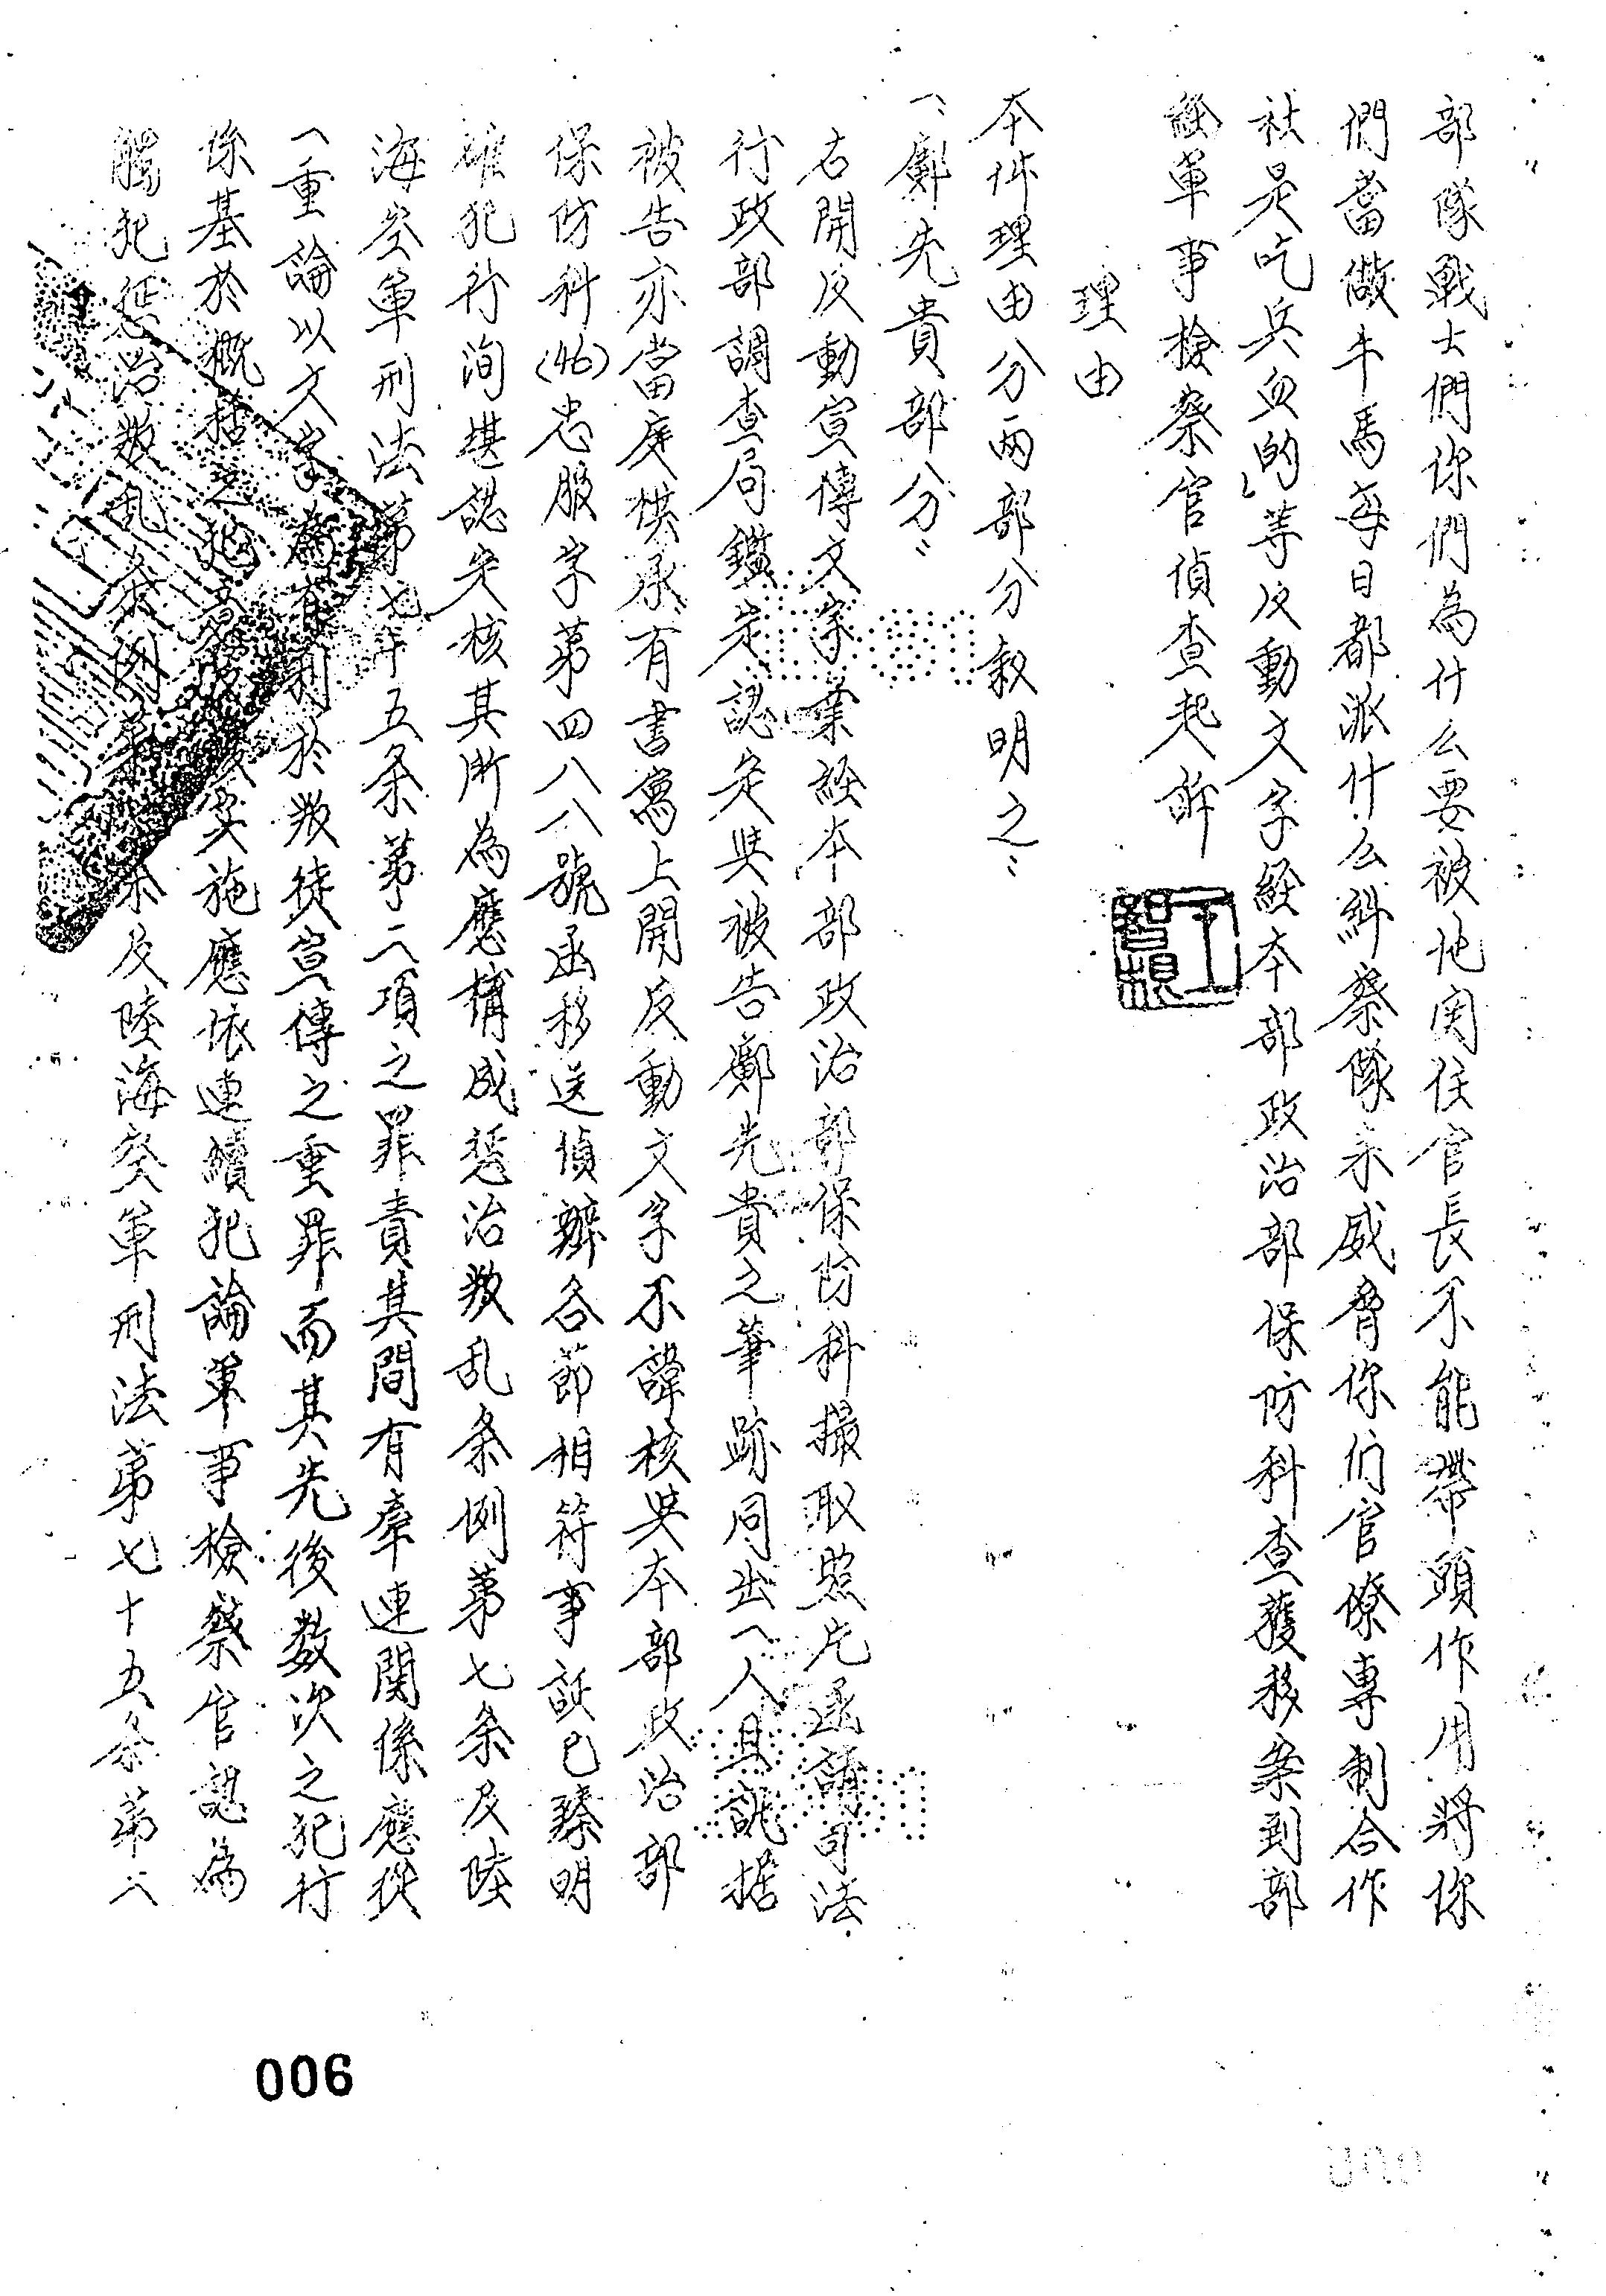 部隊戰士們你們為什么要被他関住官長不能帶頭作用將你
們當做牛馬每日都派什么糾察隊来威脅你们官僚專制合作
社是吃兵血的」等反動文字経本部政治部保防科查獲移案到部
経軍事檢察官偵查起訴
理由
本件理由分兩部分敘明之：
一、鄺先貴部分：
右開反動宣傳文字業経本部政治部保防科撮取照片函請司法
行政部調查局鑑定認定與被告鄺先貴之筆跡同出一人且訊据
被告亦當庭供承有書寫上開反動文字不諱核與本部政治部
保防科(46)忠服字第四八八號函移送偵辦各節相符事証已臻明
確犯行洵堪認定核其所為應構成惩治叛乱条例第七条及陸
海空軍刑法第七十五条第二項之罪責其間有牽連関係應從
一重論以文字為有利於叛徒宣傳之重罪而其先後数次之犯行
係基於概括之犯意反覆实施應依連續犯論軍事檢察官認為
觸犯惩治叛乱条例第条及陸海空軍刑法第七十五条第二
006